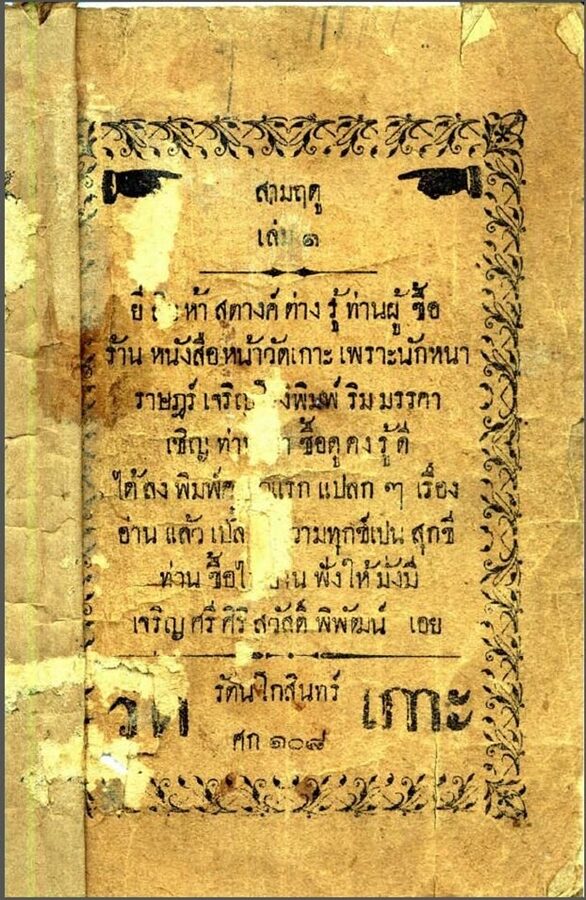 สามฤดู
เล่ม ๑
ยี่ ห้า สตางค์ ต่าง รู้ ท่านผู้ ซื้อ
ร้าน หนังสือ หน้าวัดเกาะ เพราะนักหนา
ราษฎร์ เจริญ พิมพ์ ริม มรรคา
เชิญ ท่าน ซื้อดู คง รู้ ดี
ได้ลง พิมพ์ แรก แปลก ๆ เรื่อง
อ่าน แล้ว ความทุกข์เปน สุกขี
ท่าน ซื้อ อ่าน ฟัง ให้ มั่งมี
เจริญ ศรี ศิริ สวัสดิ์ พิพัฒน์ เอย
รัตนโกสินทร์
วัด เกาะ
ศก ๑๐๘